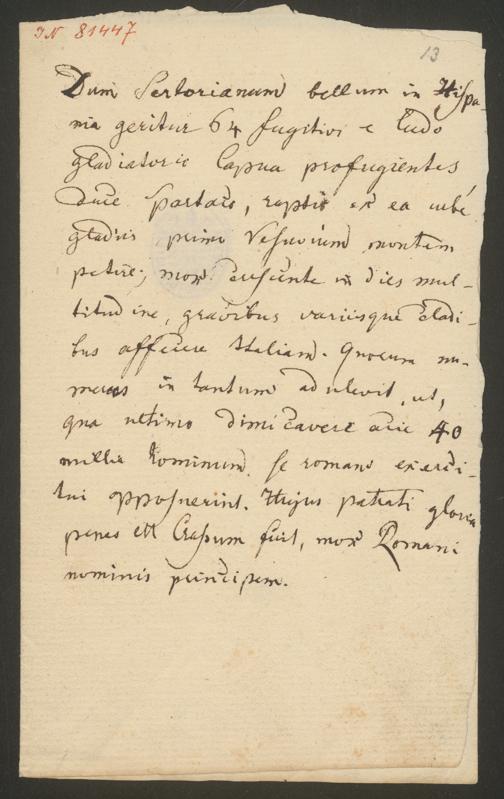 IN 81447
13
Dum Sertorianum bellum in Hispa-
nia geritur 64 fugitivi e ludo
gladiatorio Capua profugientes
duce Spartaco, raptis ex ea urbe
gladiis primo Vesuvium montem
petiere; mox crescente in dies mul-
titudine, gravibus variisque cladi-
bus affecere Italiam. Quorum nu-
merus in tantum adulevit, ut,
qua ultimo dimicavere acie 40
millia hominum se romano exerci-
tui opposuerint. Hujus patrati gloria
penes M Crassum fuit, mox Romani
nominis principem.